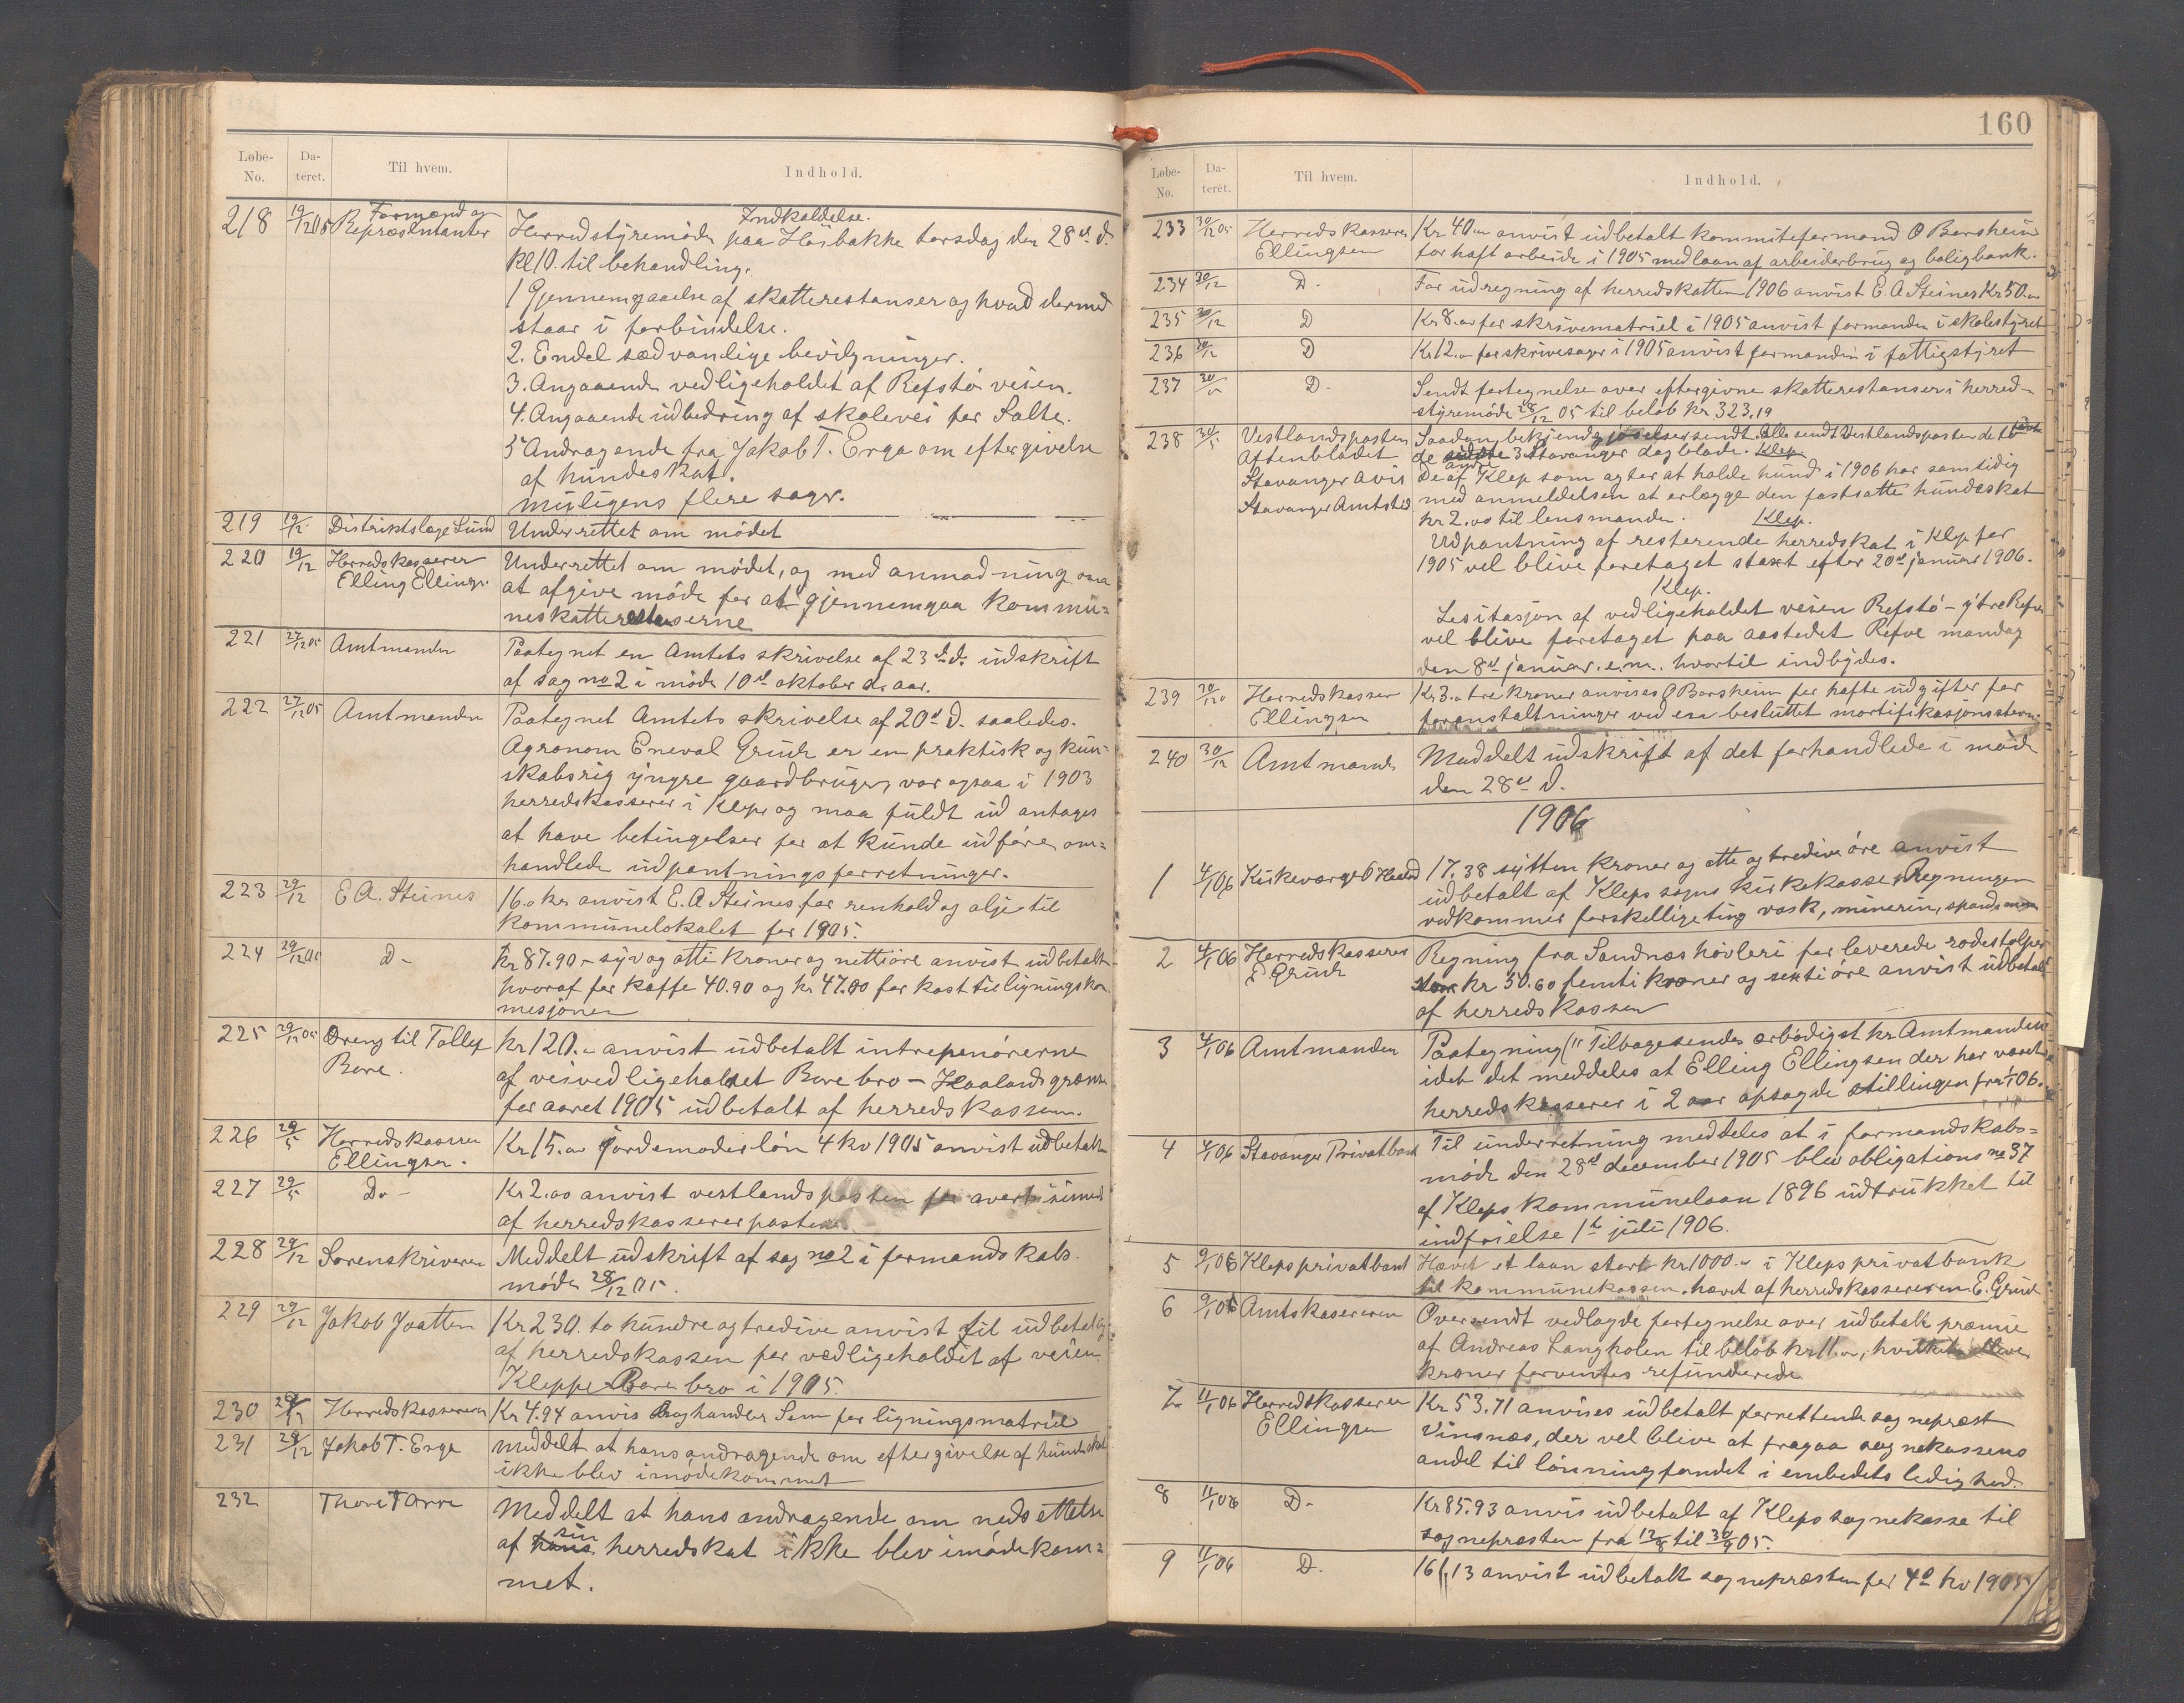 Løbe-No. Da-teret. Til hvem. Indhold.
218 19/12 05 Formænd og Repræsentanter Indkaldelse.
Herredstyremøde paa Haisbakke torsdag den 28de d.
Kl 10. til behandling.
1 Gjennemgaaelse af skatterestanser og hvad dermed
staar i forbindelse.
2. Endel sædvanlige bevilgninger.
3. Angaaende vedligeholdet af Refstø veien.
4. Angaaende udbedring af skolevei for Salte.
5 Andragende fra Jakob T. Erga om eftergivelse
af hundeskat.
muligens flere sager.
219 19/12 Distriktslæge Lund Underrettet om mødet
220 19/12 Herredskasserer Elling Ellings. Underrettet om mødet, og med anmodning om
at afgive møde for at gjennemgaa kommu=
neskatterestanserne
221 27/12 05 Amtmanden Paategnet en Amtets skrivelse af 23de d. udskrift
af sag no 2 i møde 10de oktober d. aar.
222 27/12 05 Amtmanden Paategnet Amtets skrivelse af 20de d. saaledes.
Agronom Eneval Grude er en praktisk og kun-
skabsrig yngre gaardbruger, var ogsaa i 1903
herredskasserer i Klep, og maa fuldt ud antages
at have betingelser for at kunde udføre om=
handlede udpantningsforretninger.
223 29/12 E A. Steines 16.0 kr anvist E. A Steines for renhold og olje til
kommunelokalet for 1905.
224 29/12 05 D- Kr 87.90 - syv og otti kroner og nettiøre anvist udbetalt
hvoraf for kaffe 40.90 og kr 47.00 for kost til ligningskom
mesjonen
225 29/12 05 Dreng til Tollef Bore. Kr 120.- anvist udbetalt intrepenørerne
af veivedligeholdet Bore bro - Haalands grænse
for aaret 1905 udbetalt af herredskassen.
226 29/5 Herredskasserer Ellingsen. Kr 15.00 Jordemoderløn 4 kv 1905 anvist udbetalt
227 29/5 Do - Kr 2.00 anvist vestlandsposten for avertisiment
af herredskassererposten.
228 29/12 Sorenskriveren Meddelt udskrift af sag no 2 i formandskabs.
møde 28/12 05.
229 29/12 Jakob Joatten Kr 230. to hundre og tredive anvist til udbetaling
af herredskassen for vedligeholdet af veien
Kleppe Bore bro i 1905.
230 29/12 Herredskasseren Kr 4.94 anvis Boghandler Sem for ligningsmatriel
231 29/12 Jakob T. Erga meddelt at hans andragende om eftergivelse af hundeskat
ikke blev imødekommet
232 Thore Tarre Meddelt at hans andragende om nedsettelse
af hans sin herredskat ikke blev imødekom=
met.
160
Løbe-No. Da-teret. Til hvem. Indhold.
233 30/12 05 Herredskasserer Ellingsen Kr 40.00 anvist udbetalt kommiteformand O Borsheim
for haft arbeide i 1905 med laan af arbeiderbrug og boligbank.
234 30/12 D- For udregning af herredskatten 1906 anvist E. A Steines Kr 50.00
235 30/12 D Kr 8.00 for skrivematriel i 1905 anvist formanden i skolestyret
236 30/12 D Kr 12.00 for skrivesager i 1905 anvist formanden i fattigstyret
237 30/12 D- Sendt fortegnelse over eftergivne skatterestanser i herred-
styremøde 28/12 05 til beløb kr 323.19
238 30/5 Vestlandsposten Aftenbladet Stavanger avis Stavanger Amtstid Saadan bekjendtgjørelser sendt. Alle sendt Vestlandsposten de to første
de sidste andre 3 Stavanger dagblade. Klep.
De af Klep som agter at holde hund i 1906 har samtidig
med anmeldelsen at erlægge den fastsatte hundeskat
kr 2.00 til lensmanden. Klep.
Udpantning af resterende herredskat i Klep for
1905 vel blive foretaget staxt efter 20de januar 1906.
Klep.
Lesitasjon af vedligeholdet veien Refstø - ytre Refve
vel blive foretaget paa aastedet Refve mandag
den 8de januar. e. m. hvortil indbydes.
239 30/12 Herredskasser Ellingsen Kr 3.00 tre kroner anvises O Borsheim for hafte udgifter for
foranstaltninger ved en besluttet mortifikasjonsstevn.
240 30/12 Amtmanden Meddelt udskrift af det forhandlede i møde
den 28de d.
1906
1 4/1 06 Kirkeværge O 17.38 sytten kroner og otte og tredive øre anvist
udbetalt af Kleps sogns kirkekasse. Regningen
vedkommer forskellige ting vask, minerin, spand
2 4/1 06 Herredskasserer E Grude Regning fra Sandnæs høvleri for leverede rodestolper
stor kr 50.60 femti kroner og seksti øre anvist udbetalt
af herredskassen
3 4/1 06 Amtmanden Paategning (" Tilbagesendes ærbødigst hr Amtmanden
idet det meddeles at Elling Ellingsen der har været
herredskasserer i 2 aar opsagde stillingen fra 1/1 06.
4 4/1 06 Stavanger Privatbank Til underretning meddeles at i formandskabs=
møde den 28de december 1905 blev obligations no 37
af Kleps kommunelaan 1896 udtrukket til
indfrielse 1te juli 1906.
5 9/1 06 Kleps privatbank Hævet et laan stort kr 1000.00 i Kleps privatbank
til kommunekassen. hævet af herredskassereren E. Grude
6 9/1 06 Amtskassereren Oversendt vedlagde fortegnelse over udbetalt præmie
af Andreas Langholen til beløb kr 11.00, hvilke elleve
kroner forventes refunderede.
7 11/1 06 Herredskasserer Ellingsen Kr 53.71 anvises udbetalt forrettende sognepræst
Vinsnæs, der vel blive at fragaa sognekassens
andel til lønningfondet i embedets ledighed.
8 11/1 06 D- Kr 85.93 anvis udbetalt af Kleps sognekasse til
sognepræsten fra 12/8 til 30/9 05.
9 11/1 06 D. 161.13 anvist udbetalt sognepræsten for 4de kv 1905